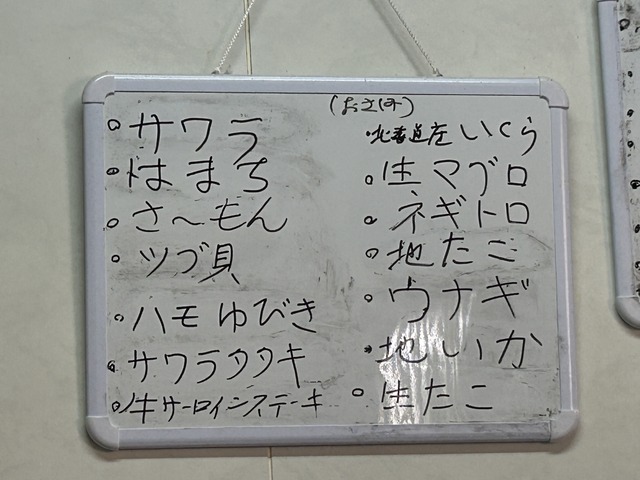 (おさしみ)
サワラ
はまち
さ〜もん
ツブ貝
ハモゆびき
サワラタタキ
牛サーロインステーキ
北海道産いくら
生マグロ
ネギトロ
地たこ
ウナギ
地いか
生たこ